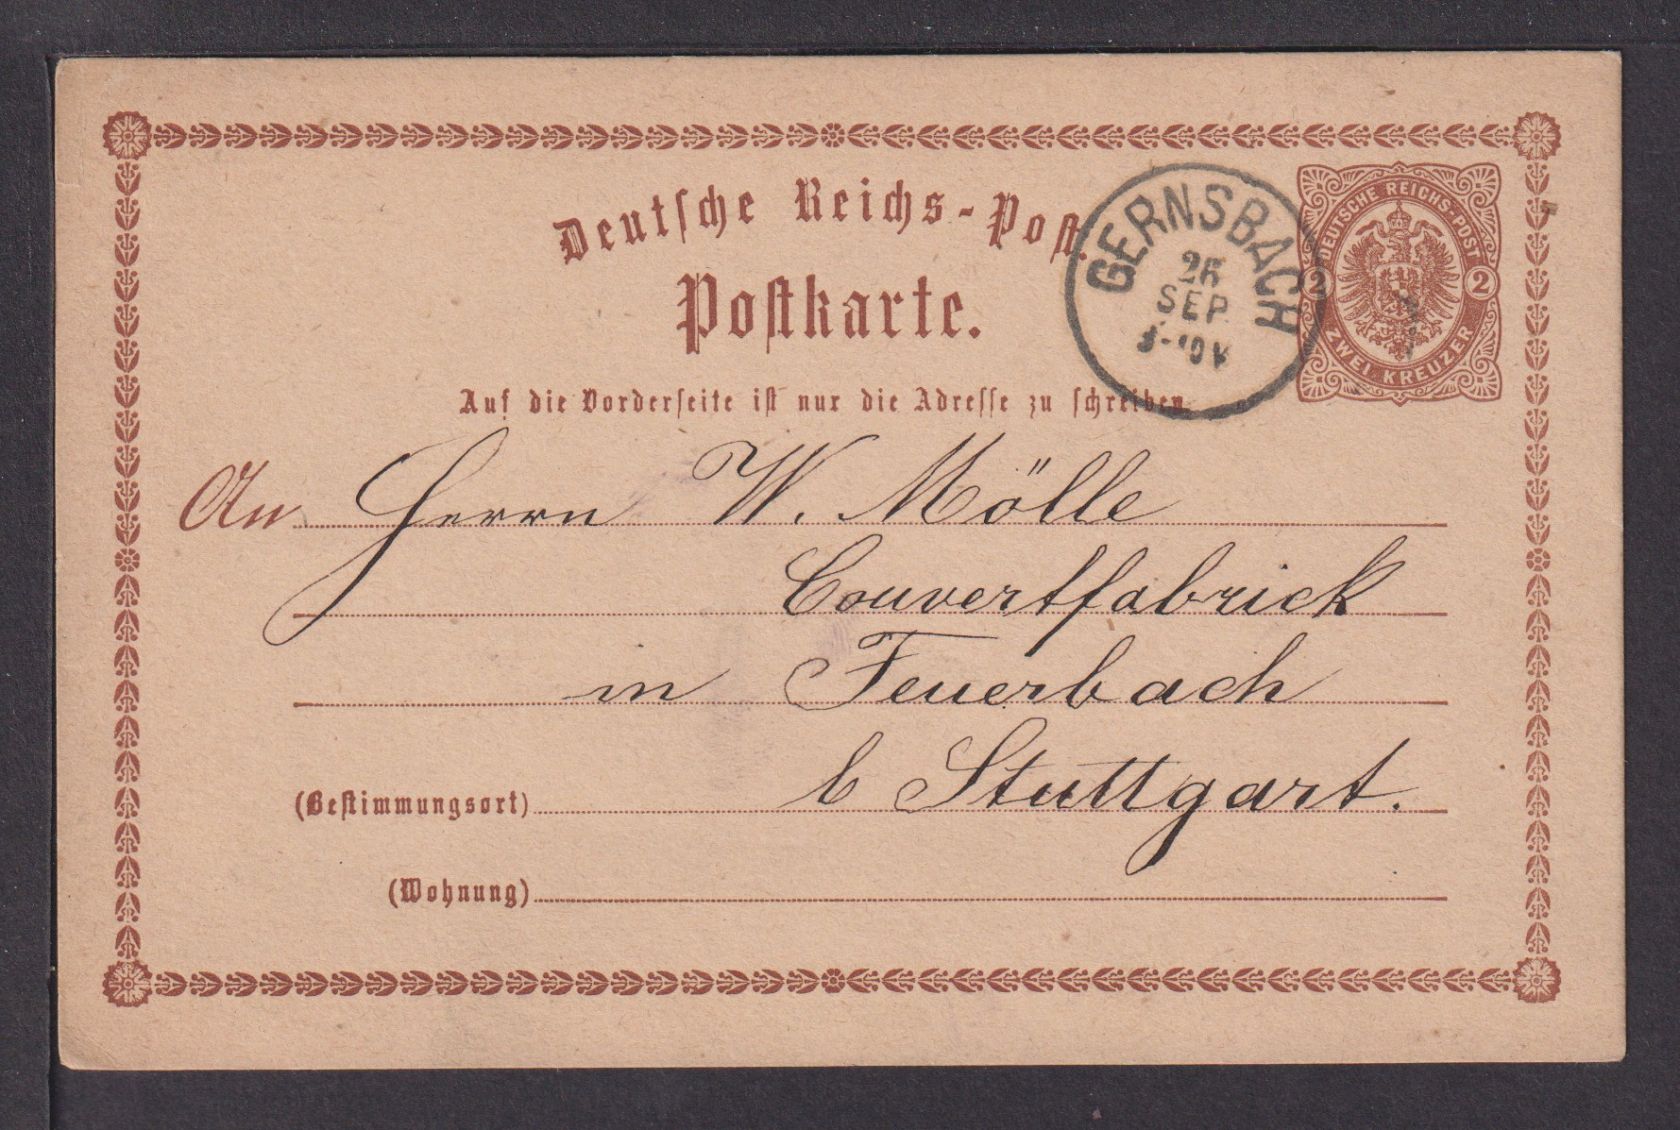 Deutsche Reichs-Post.
Postkarte.
GERNSBACH
26
SEP
DEUTSCHE REICHS-POST
2 2
ZWEI KREUZER
Auf die Vorderseite ist nur die Adresse zu schreiben.
An Herrn W. Mölle
Couvertfabrick
in Feuerbach
(Bestimmungsort) b Stuttgart.
(Wohnung)